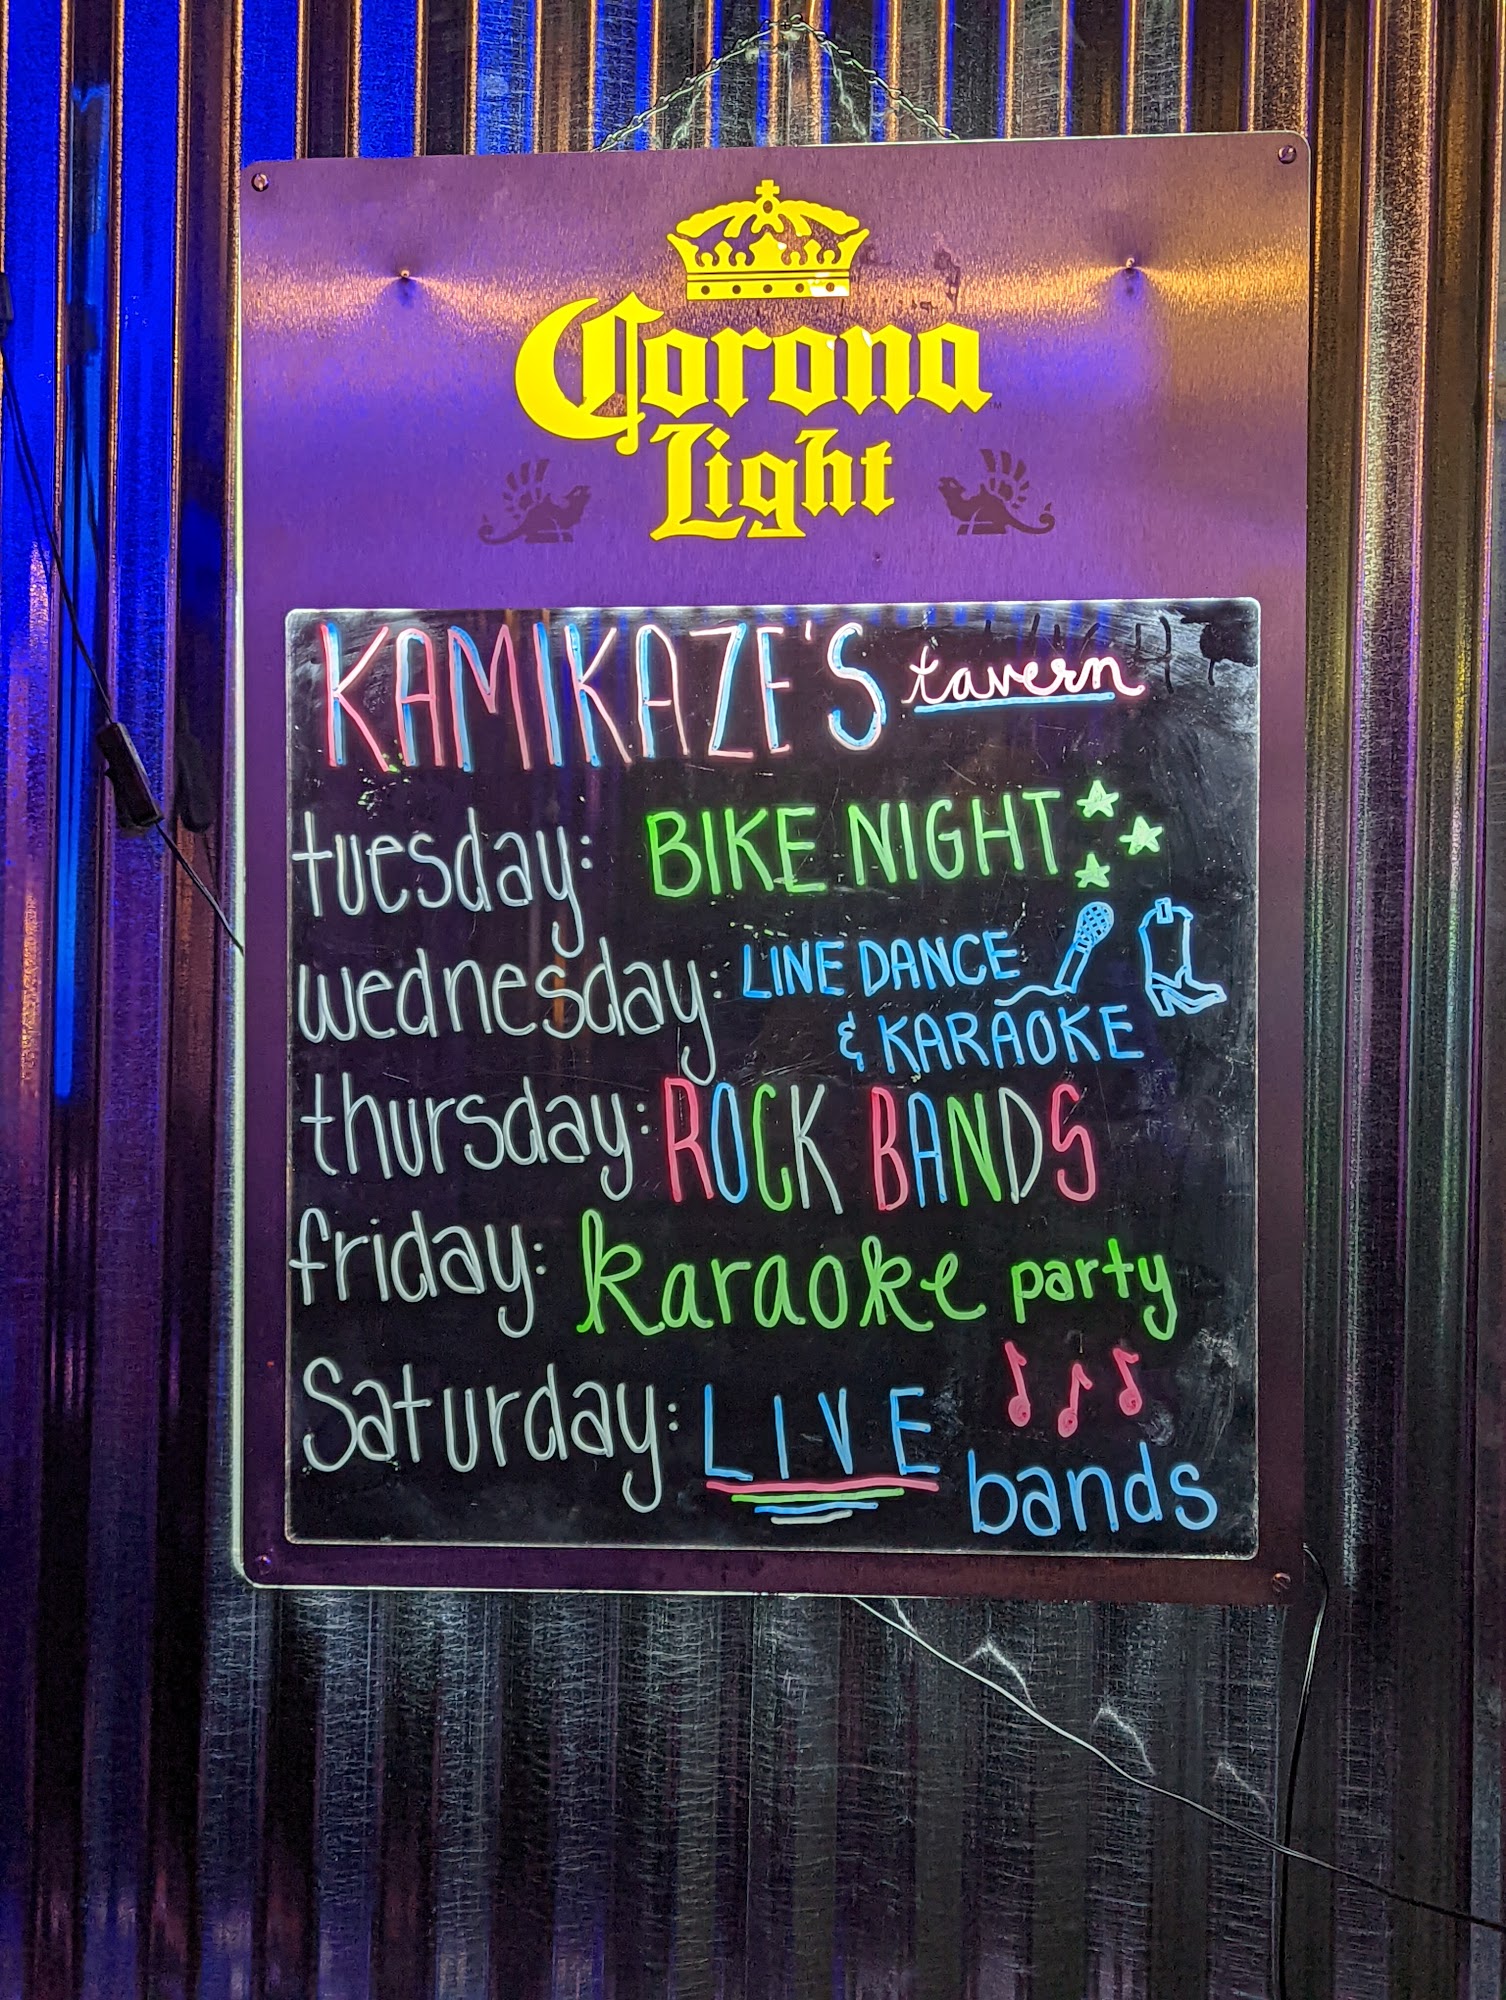 Corona
Light
KAMIKAZE'S tavern
tuesday: BIKE NIGHT
wednesday: LINE DANCE
& KARAOKE
thursday: ROCK BANDS
friday: karaoke party
Saturday: LIVE
bands